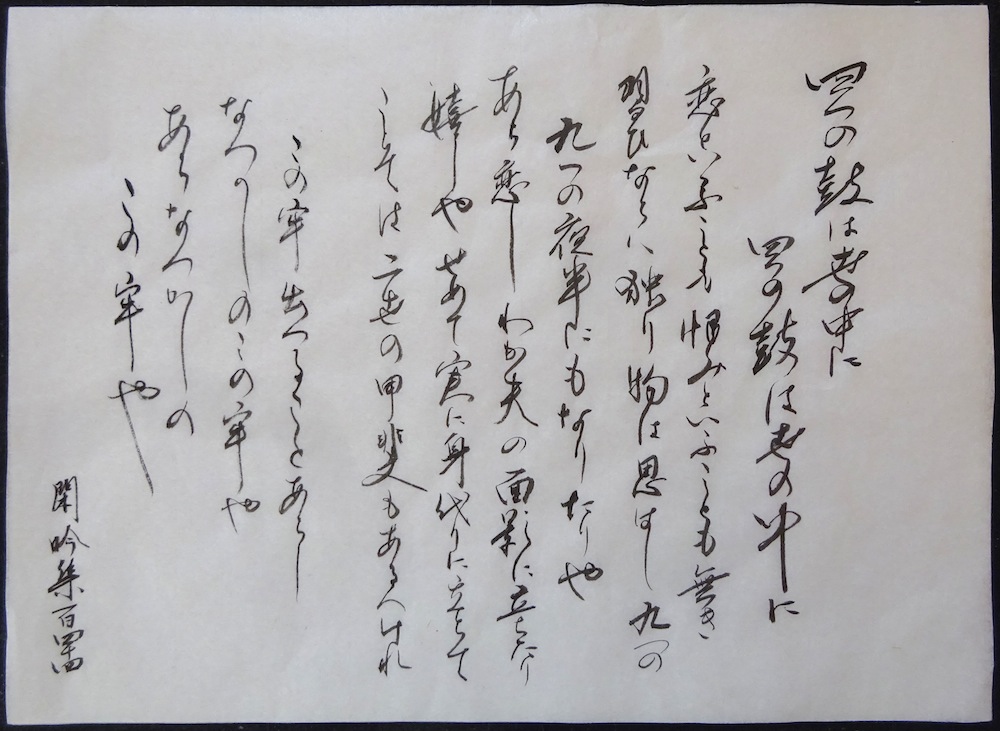 四つの鼓は世の中に
四の鼓は世の中に
恋といふことも恨みといふことも無き
習ひならは独り物は思はし九つの
九つの夜半にもなりたりや
あら恋しわか夫の面影に立ちたり
嬉しやせめて実に身代りに立ちて
こそは二世の甲斐もあるへけれ
この牢出つることあらし
なつかしのこの牢や
あらなつかしの
この牢や
閑吟集百四